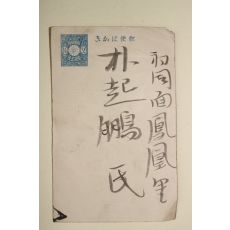 郵便はかき
初同面鳳凰里
朴起鵬氏